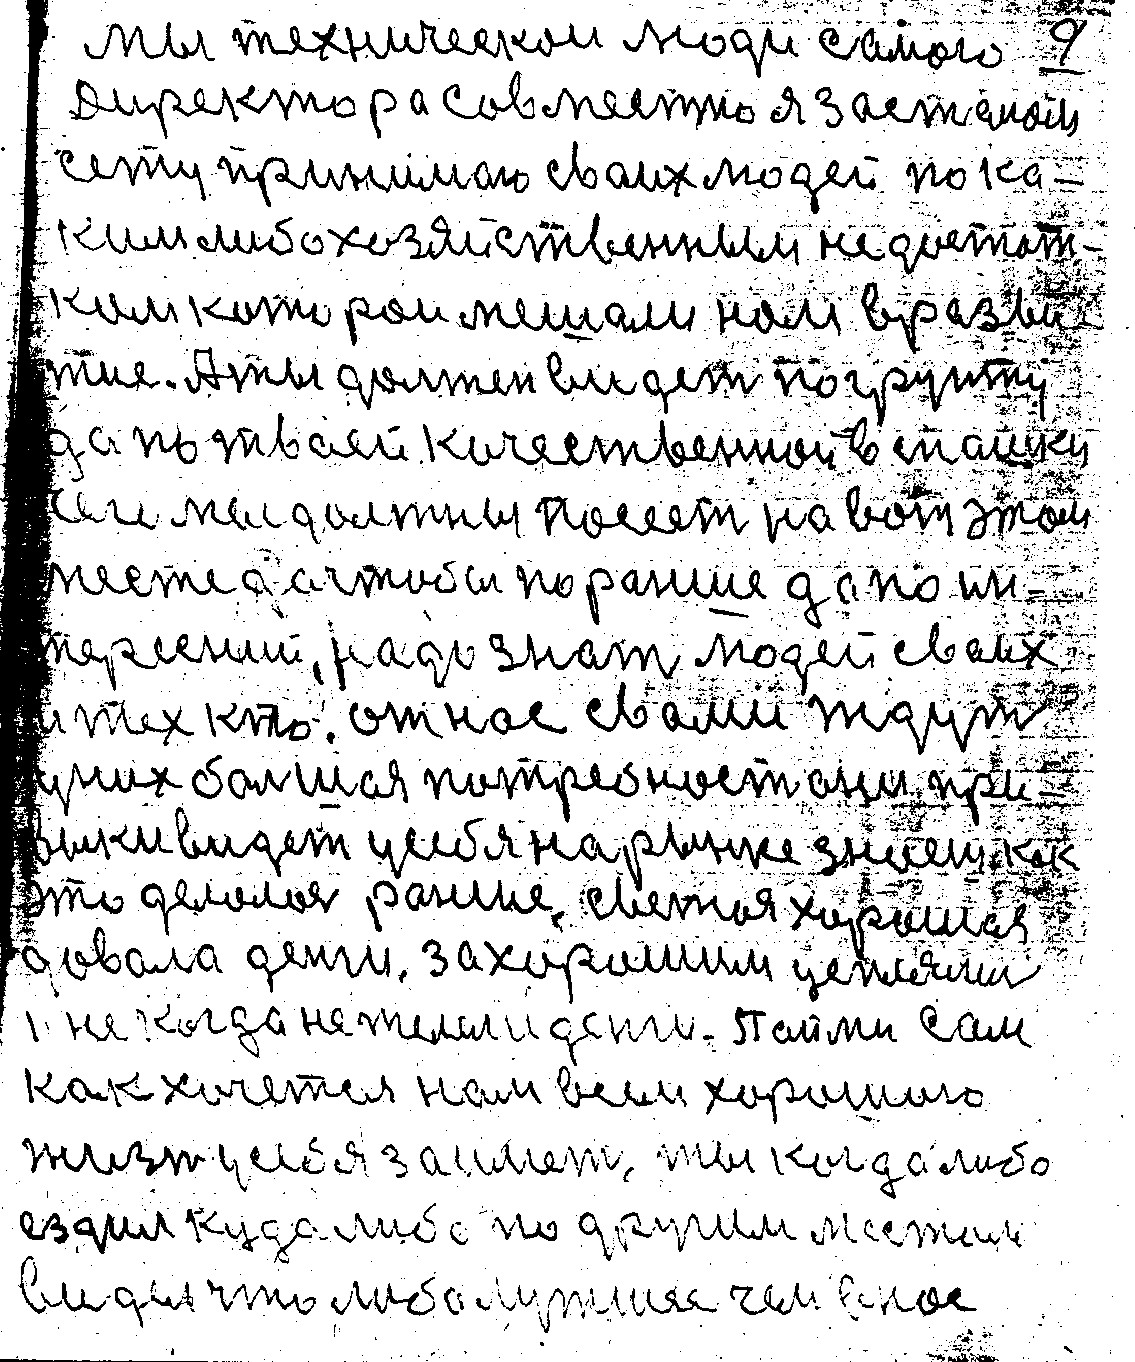 мы технической люди самого 9
Директора совместно я за етаком
сету принимаю сваих людей по ка-
ким либо хозяйственным недостат-
кам которои мешали нам в разви-
тие. А ты должен видет по грунту
да по тваей качественной вспашки
чеги мы должны посеет на вот этом
месте да чтобы по ранше да по ин-
тересний, надо знат людей сваих
и тех кто. от нас с вами ждут
у них балшая потребност они при-
выки видет у себя на рынке знаеш как
это делолоя ранше, светоя хорошая
довала денги, за хорошим цепля́ми
и не когда не желели денги. Пайми сам
как хочется нам всем хорошого
жизт у себя заимет, ты когда либо
ездил куда либо по другим местам
видел что либо лутшее чем в нас